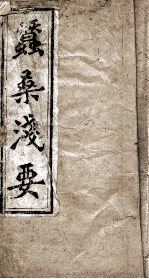 蠶桑淺要